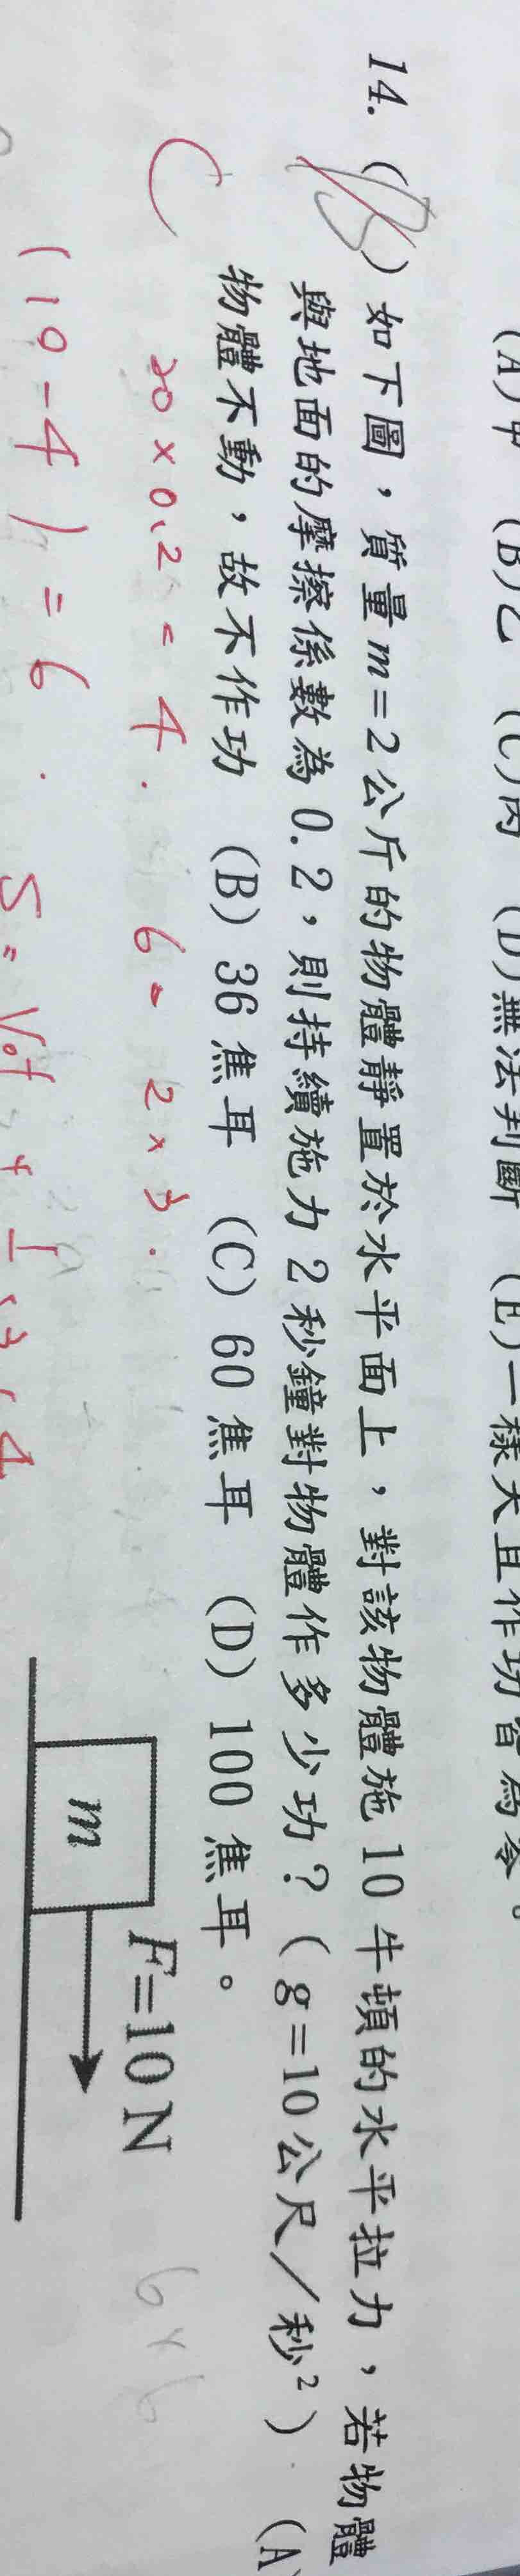 (A)甲 (B)乙 (C)丙 (D)無法判斷 (E)一樣大且作功皆為零。
14. (B) 如下圖，質量 m=2 公斤的物體靜置於水平面上，對該物體施 10 牛頓的水平拉力，若物體
與地面的摩擦係數為 0.2，則持續施力 2 秒鐘對物體作多少功？（g=10 公尺／秒²） (A)
物體不動，故不作功 (B) 36 焦耳 (C) 60 焦耳 (D) 100 焦耳。
C
20×0.2=4. 6=2×3.
(10-4)=6.
F=10 N
m
6×6